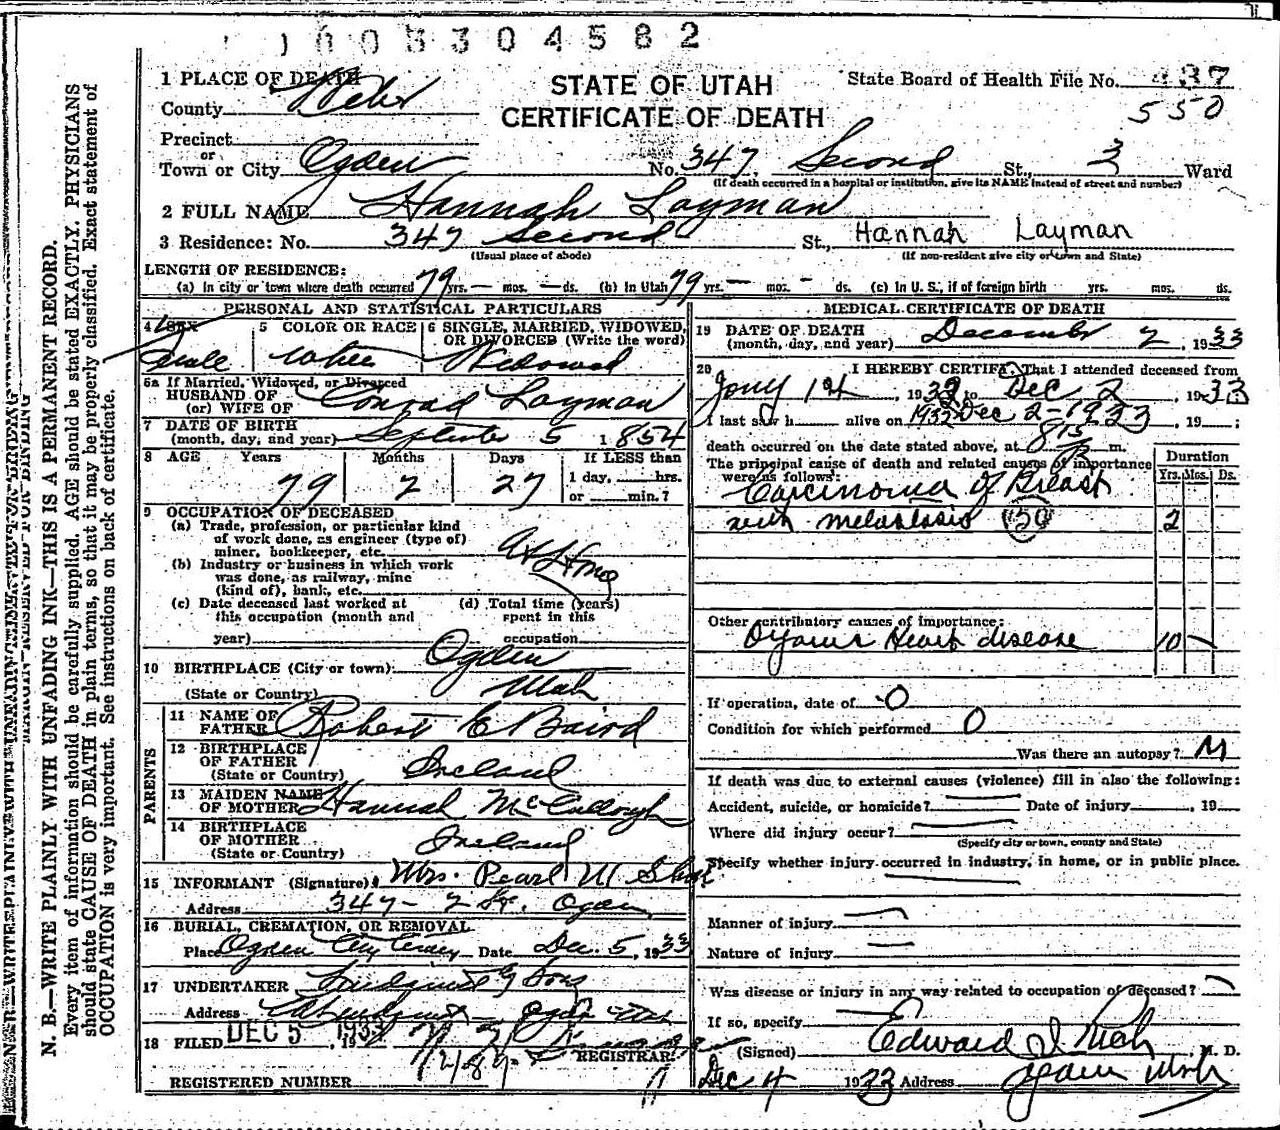 1003304582
1 PLACE OF DEATH
County Weber
Precinct
or
Town or City Ogden
STATE OF UTAH
CERTIFICATE OF DEATH
State Board of Health File No. 437
550
No. 347 Second St., 3 Ward
(If death occurred in a hospital or institution, give its NAME instead of street and number)
2 FULL NAME Hannah Layman
3 Residence: No. 347 Second St., Hannah Layman
(Usual place of abode) (If non-resident give city or town and State)
LENGTH OF RESIDENCE:
(a) In city or town where death occurred 79 yrs. — mos. — ds. (b) In Utah 79 yrs. — mos. - ds. (c) In U. S., if of foreign birth yrs. mos. ds.
PERSONAL AND STATISTICAL PARTICULARS
4 SEX 5 COLOR OR RACE 6 SINGLE, MARRIED, WIDOWED, OR DIVORCED (Write the word)
White Widowed
6a If Married, Widowed, or Divorced
HUSBAND OF
(or) WIFE OF Conrad Layman
7 DATE OF BIRTH
(month, day, and year) September 5 1854
8 AGE Years Months Days If LESS than
79 2 27 1 day, hrs.
or min.?
9 OCCUPATION OF DECEASED
(a) Trade, profession, or particular kind
of work done, as engineer (type of)
miner, bookkeeper, etc. At Home
(b) Industry or business in which work
was done, as railway, mine
(kind of), bank, etc.
(c) Date deceased last worked at (d) Total time (years)
this occupation (month and spent in this
year) occupation
10 BIRTHPLACE (City or town) Ogden
(State or Country) Utah
PARENTS
11 NAME OF
FATHER Robert E Baird
12 BIRTHPLACE
OF FATHER
(State or Country) Ireland
13 MAIDEN NAME
OF MOTHER Hannah McCullough
14 BIRTHPLACE
OF MOTHER
(State or Country) Ireland
15 INFORMANT (Signature) Mrs. Pearl M
Address 347 - 2 St. Ogden
16 BURIAL, CREMATION, OR REMOVAL
Place Ogden City Date Dec. 5, 1933
17 UNDERTAKER Lindquist & Sons
Address Ogden Utah
18 FILED DEC 5, 193
REGISTRAR
REGISTERED NUMBER
MEDICAL CERTIFICATE OF DEATH
19 DATE OF DEATH
(month, day, and year) December 2, 1933
20 I HEREBY CERTIFY, That I attended deceased from
14, 1932 to Dec 2, 1933
I last saw h alive on Dec 2-1933, 19 ;
death occurred on the date stated above, at 815 P m.
The principal cause of death and related causes of importance
were as follows: Duration
Yrs. Mos. Ds.
Carcinoma of Breast
with metastasis 50 2
Other contributory causes of importance:
Organic Heart disease 10 —
If operation, date of 0
Condition for which performed 0
Was there an autopsy?
If death was due to external causes (violence) fill in also the following:
Accident, suicide, or homicide? Date of injury , 19
Where did injury occur?
(Specify city or town, county and State)
Specify whether injury occurred in industry, in home, or in public place.
Manner of injury
Nature of injury
Was disease or injury in any way related to occupation of deceased?
If so, specify
(Signed) Edward I Rich, M. D.
Dec 4 1933 Address Ogden Utah
N. B.—WRITE PLAINLY WITH UNFADING INK—THIS IS A PERMANENT RECORD.
Every item of information should be carefully supplied. AGE should be stated EXACTLY. PHYSICIANS
should state CAUSE OF DEATH in plain terms, so that it may be properly classified. Exact statement of
OCCUPATION is very important. See instructions on back of certificate.
MARGIN RESERVED FOR BINDING